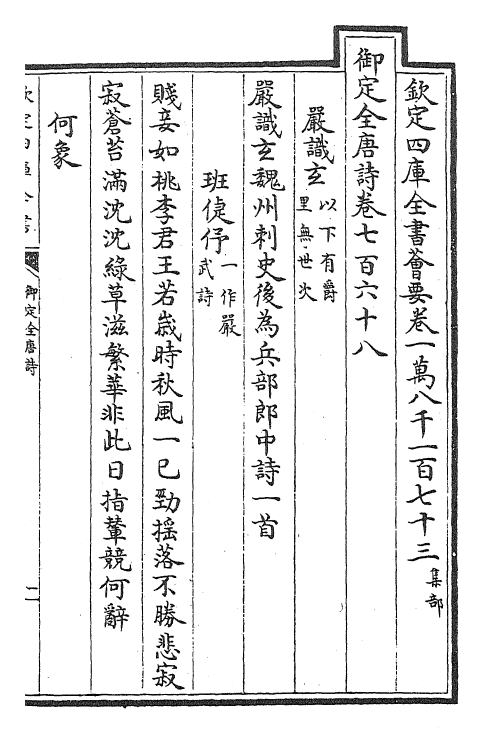 欽定四庫全書薈要卷一萬八千一百七十三 集部
御定全唐詩卷七百六十八
嚴識玄 以下有爵里無世次
嚴識玄魏州刺史後為兵部郎中詩一首
班倢伃 一作嚴武詩
賤妾如桃李君王若歲時秋風一已勁揺落不勝悲寂
寂蒼苔滿沈沈綠草滋繁華非此日指輦競何辭
何象
御定全唐詩